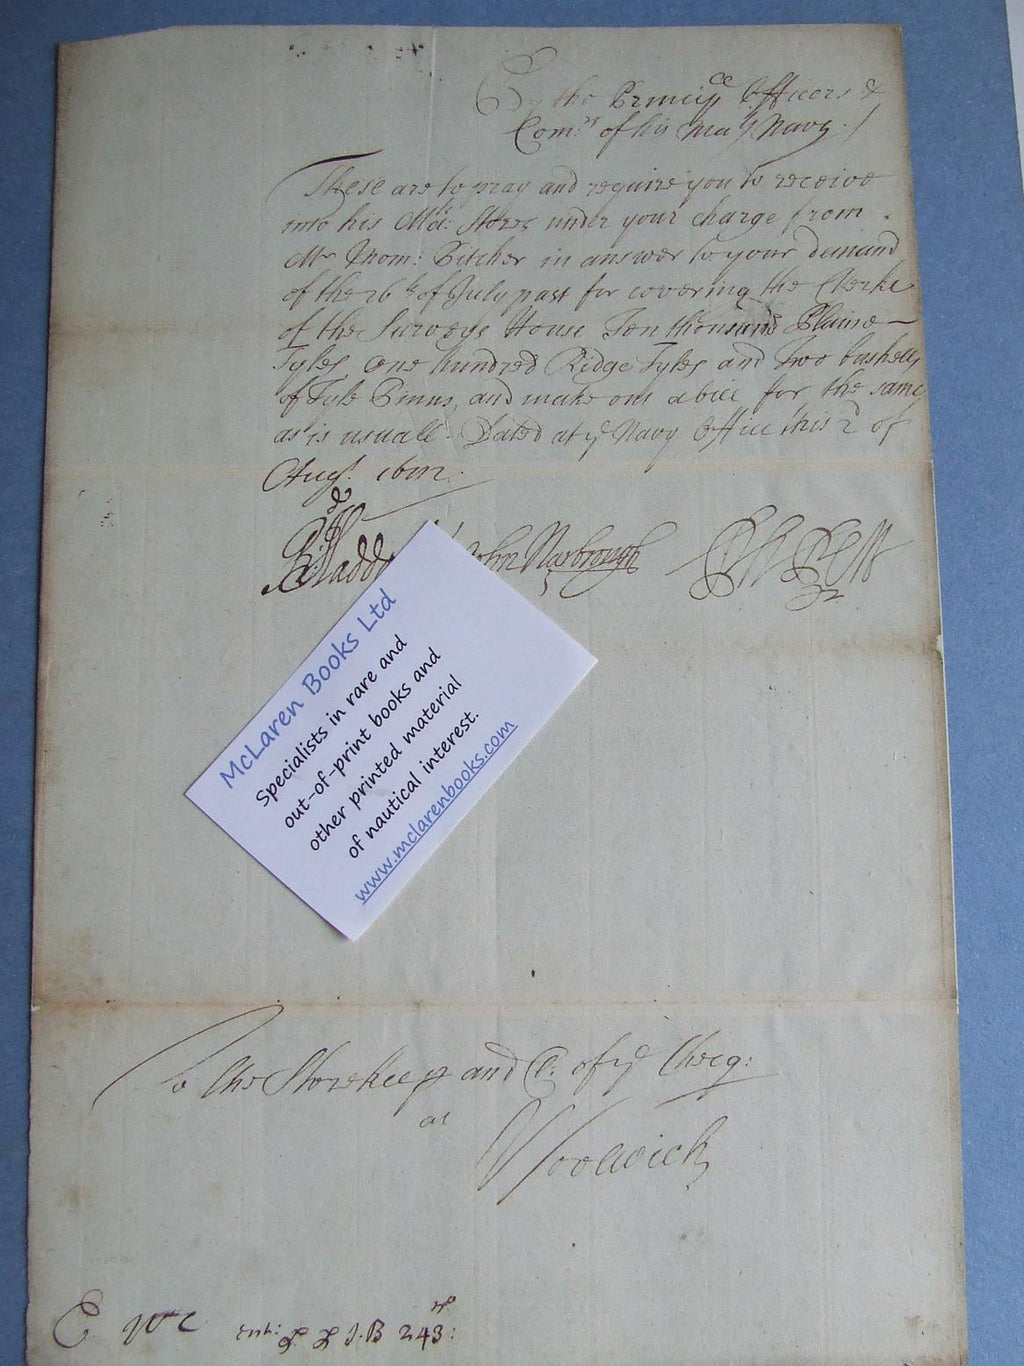 By the Principll Officers &
Comrs. of his Mays Navy./
These are to pray and require you to receive
into his Mats: Stores under your charge from
Mr Thom: Pitcher in answer to your demand
of the 26th of July past for covering the Clerke
of the Surveys House Ten thousand Plaine
Tyles, One hundred Ridge Tyles and Two bushells
of Tyle Pinns, and make out a bill for the same
as is usuall. Dated at ye Navy Office this 2d of
Augt.
John Narbrough
Ph Pett
McLaren Books Ltd
Specialists in rare and
out-of-print books and
other printed material
of nautical interest.
www.mclarenbooks.com
To the Storekeepr and C: of ye Checq:
at
Woolwich
243: